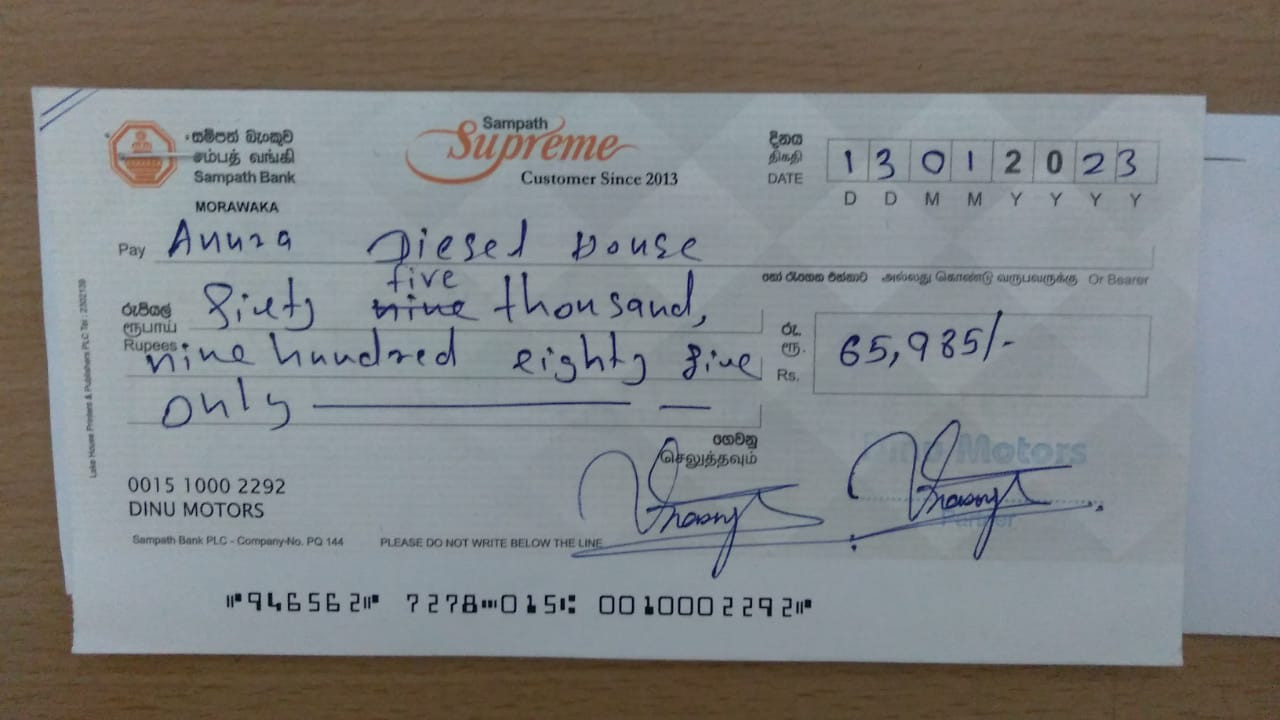 සම්පත් බැංකුව
சம்பத் வங்கி
Sampath Bank
MORAWAKA
Sampath
Supreme
Customer Since 2013
දිනය
திகதி
DATE
1 3 0 1 2 0 2 3
D D M M Y Y Y Y
Pay Anura Diesel House
හෝ රැගෙන එන්නාට அல்லது கொண்டு வருபவருக்கு Or Bearer
five
රුපියල් ரூபாய் Rupees Sixty nine thousand,
nine hundred eighty five
only
රු. ரூ. Rs. 65,985/-
ගෙවනු
செலுத்தவும்
Dinu Motors
Partner
0015 1000 2292
DINU MOTORS
Sampath Bank PLC - Company-No. PQ 144 PLEASE DO NOT WRITE BELOW THE LINE
Lake House Printers & Publishers PLC Tel : 2302139
⑈946562⑈ 7278⑉015⑆ 0010002292⑈